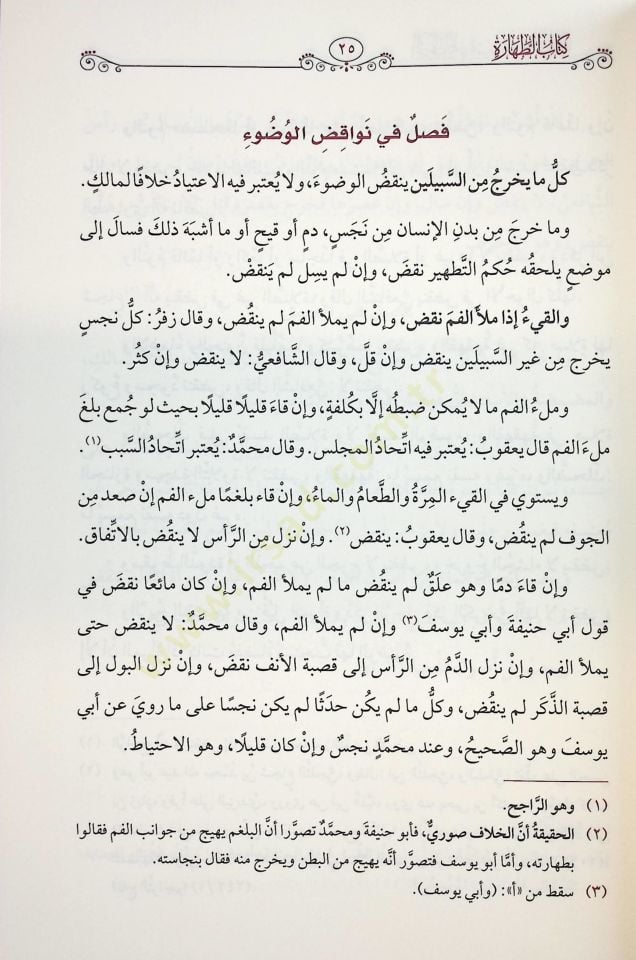 كتاب الطهارة
٢٥
فَصلٌ في نَواقِضِ الوُضُوءِ
كلُّ ما يخرجُ مِن السَّبيلَين ينقضُ الوضوءَ، ولا يُعتبر فيه الاعتيادُ خلافًا لمالكٍ.
وما خرجَ مِن بدنِ الإنسان مِن نَجَسٍ، دمٍ أو قيحٍ أو ما أشبَهَ ذلك فسالَ إلى
موضعٍ يلحقُه حُكمُ التَّطهير نقضَ، وإنْ لم يسِل لم يَنقضْ.
والقيءُ إذا ملأ الفمَ نقض، وإن لم يملأ الفمَ لم ينقُض، وقال زفرُ: كلُّ نجسٍ
يخرج مِن غير السَّبيلَين ينقض وإنْ قلَّ، وقال الشَّافعيُّ: لا ينقض وإنْ كثُر.
وملءُ الفم ما لا يُمكن ضبطُه إلَّا بكُلفةٍ، وإنْ قاءَ قليلًا قليلًا بحيث لو جُمع بلغَ
ملءَ الفم قال يعقوبُ: يُعتبر فيه اتِّحادُ المجلس. وقال محمَّدٌ: يُعتبر اتِّحادُ السَّبب(١).
ويستوي في القيء المِرَّةُ والطَّعامُ والماءُ، وإنْ قاء بلغمًا ملء الفم إنْ صعد مِن
الجوف لم ينقُض، وقال يعقوبُ: ينقض(٢). وإنْ نزل مِن الرَّأس لا ينقُض بالاتِّفاق.
وإنْ قاءَ دمًا وهو علَقٌ لم ينقُض ما لم يملأ الفم، وإنْ كان مائعًا نقضَ في
قول أبي حنيفةَ وأبي يوسفَ(٣) وإنْ لم يملأ الفم، وقال محمَّدٌ: لا ينقض حتى
يملأ الفم، وإنْ نزل الدَّمُ مِن الرَّأس إلى قصبة الأنف نقضَ، وإنْ نزل البول إلى
قصبة الذَّكَر لم ينقُض، وكلُّ ما لم يكُن حدَثًا لم يكن نجسًا على ما رويَ عن أبي
يوسفَ وهو الصَّحيحُ، وعند محمَّدٍ نجسٌ وإنْ كان قليلًا، وهو الاحتياطُ.
(١) وهو الرَّاجح.
(٢) الحقيقةُ أنَّ الخلاف صوريٌّ، فأبو حنيفة ومحمَّدٌ تصوَّرا أنَّ البلغم يهيج من جوانب الفم فقالوا
بطهارته، وأمَّا أبو يوسف فتصوَّر أنَّه يهيج من البطن ويخرج منه فقال بنجاسته.
(٣) سقط من «أ»: (وأبي يوسف).
www.irsad.com.tr